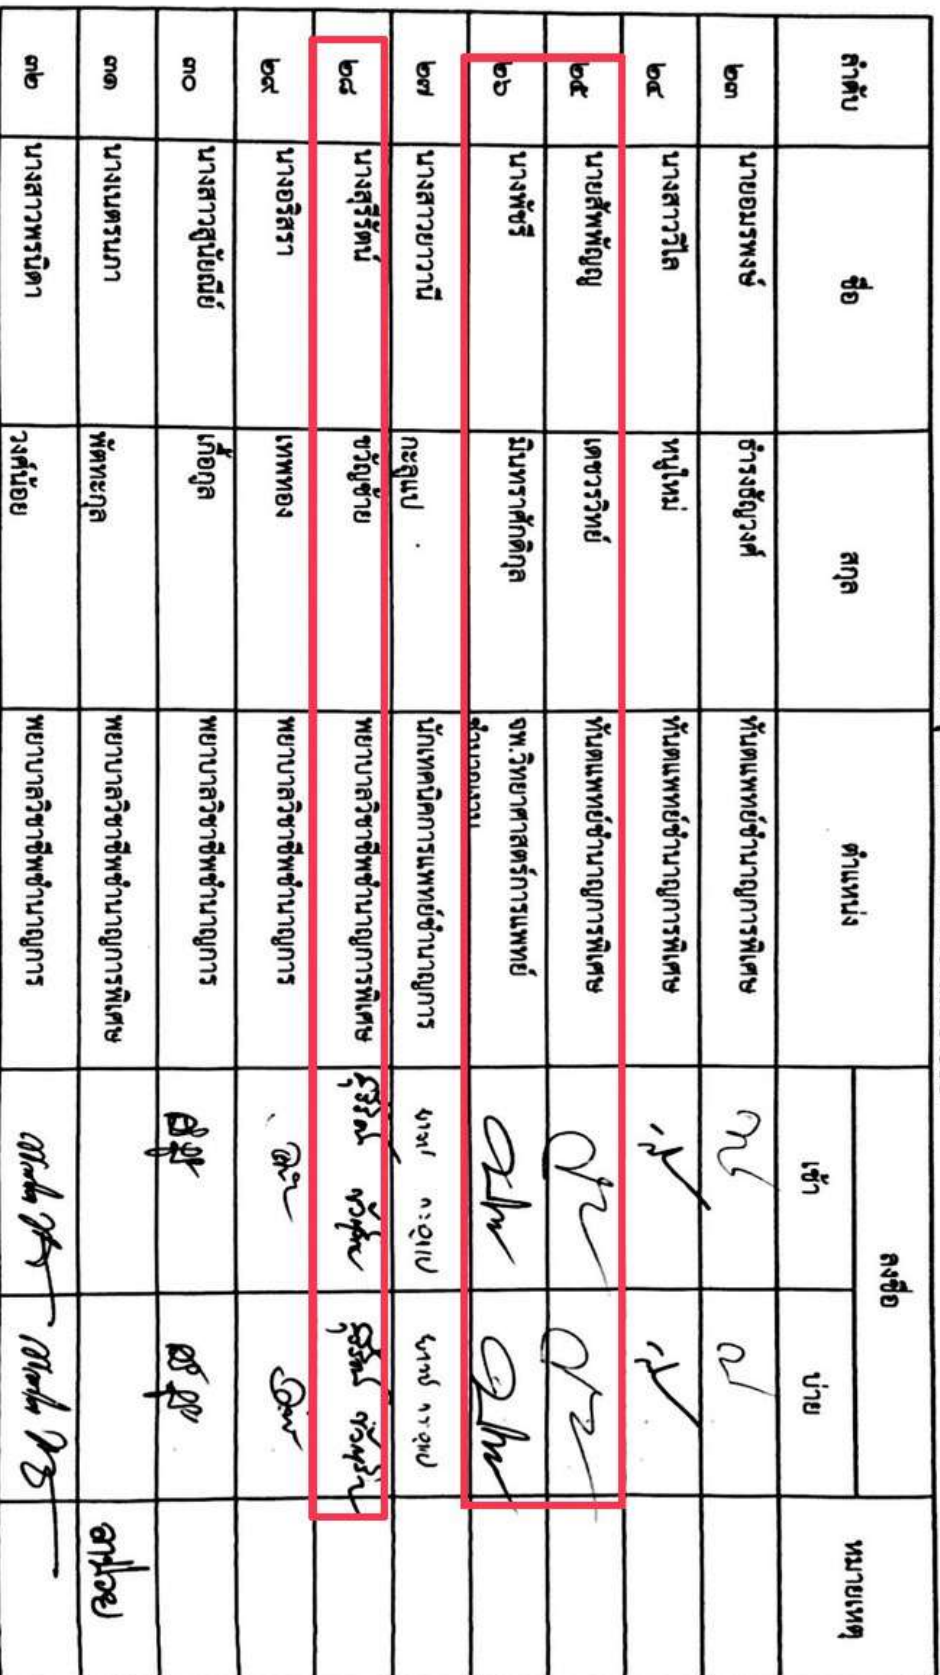 ลำดับ ชื่อ สกุล ตำแหน่ง ลงชื่อ หมายเหตุ
เช้า บ่าย
๒๓ นายอมรพงษ์ ธำรงธัญวงศ์ ทันตแพทย์ชำนาญการพิเศษ
๒๔ นางสาววิไล หมู่ใหม่ ทันตแพทย์ชำนาญการพิเศษ
๒๕ นายสัพพัญญู เดชวรวิทย์ ทันตแพทย์ชำนาญการพิเศษ
๒๖ นางพัชรี มินทราศักดิกุล จพ.วิทยาศาสตร์การแพทย์
ชำนาญงาน
๒๗ นางสาวยาวานี กะลูแป นักเทคนิคการแพทย์ชำนาญการ
๒๘ นางสุรีรัตน์ ขวัญซ้าย พยาบาลวิชาชีพชำนาญการพิเศษ
๒๙ นางอริสรา เทพทอง พยาบาลวิชาชีพชำนาญการ
๓๐ นางสาวสูนัยณีย์ เก้อกูล พยาบาลวิชาชีพชำนาญการ
๓๑ นางเนตรนภา พัดทะกุล พยาบาลวิชาชีพชำนาญการพิเศษ ลาป่วย
๓๒ นางสาวพรนิดา วงศ์น้อย พยาบาลวิชาชีพชำนาญการ